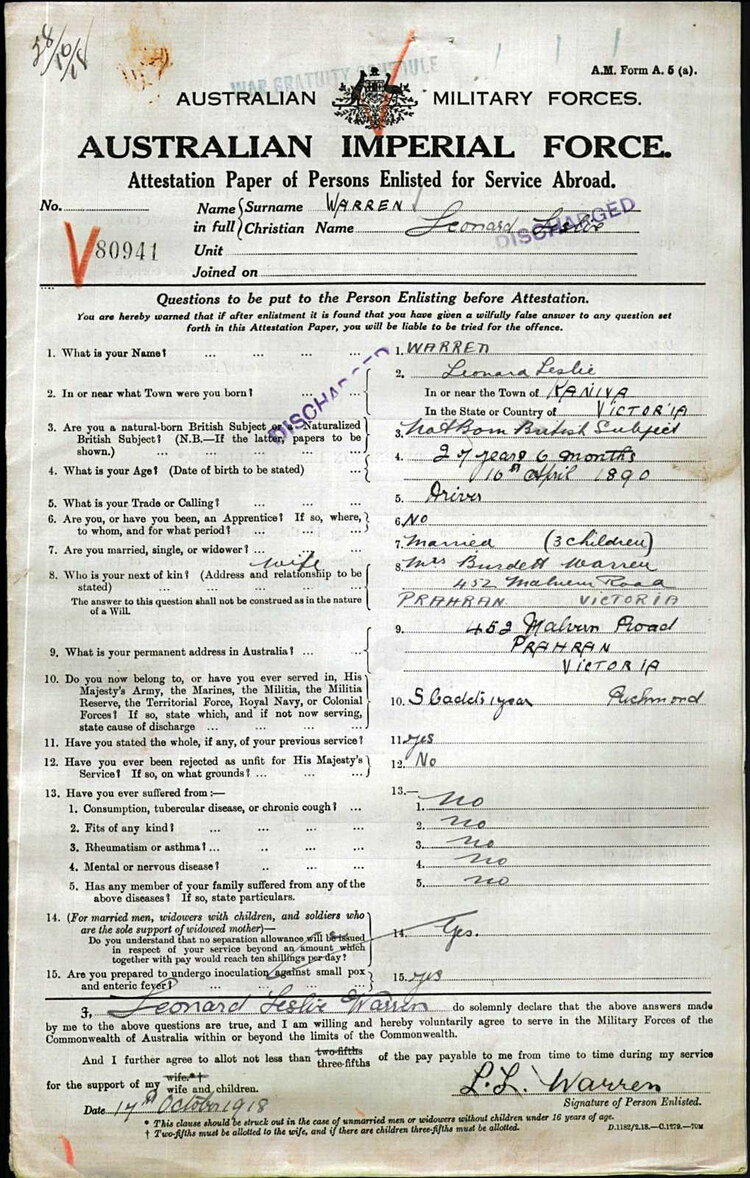 28/10/18
A.M. Form A. 5 (a).
WAR GRATUITY SCHEDULE
AUSTRALIAN MILITARY FORCES.
AUSTRALIAN IMPERIAL FORCE.
Attestation Paper of Persons Enlisted for Service Abroad.
No.
Name in full { Surname WARREN
Christian Name Leonard Leslie
DISCHARGED
V80941
Unit
Joined on
Questions to be put to the Person Enlisting before Attestation.
You are hereby warned that if after enlistment it is found that you have given a wilfully false answer to any question set
forth in this Attestation Paper, you will be liable to be tried for the offence.
1. What is your Name? ... ... ... ... 1. WARREN
2. Leonard Leslie
2. In or near what Town were you born? ... ... In or near the Town of KANIVA
In the State or Country of VICTORIA
DISCHARGED
3. Are you a natural-born British Subject or a Naturalized
British Subject? (N.B.—If the latter, papers to be
shown.) ... ... ... ... 3. Nat Born British Subject
4. What is your Age? (Date of birth to be stated) ... 4. 27 years 6 months
10th April 1890
5. What is your Trade or Calling? ... ... ... 5. Driver
6. Are you, or have you been, an Apprentice? If so, where,
to whom, and for what period? ... ... ... 6. No
7. Are you married, single, or widower? ... ... ... 7. Married (3 children)
wife
8. Who is your next of kin? (Address and relationship to be
stated) ... ... ... ... 8. Mrs Burdett Warren
452 Malvern Road
The answer to this question shall not be construed as in the nature
of a Will.
PRAHRAN VICTORIA
9. What is your permanent address in Australia? ... ... 9. 452 Malvern Road
PRAHRAN
VICTORIA
10. Do you now belong to, or have you ever served in, His
Majesty's Army, the Marines, the Militia, the Militia
Reserve, the Territorial Force, Royal Navy, or Colonial
Forces? If so, state which, and if not now serving,
state cause of discharge ... ... ... 10. S Cadets 1 year Richmond
11. Have you stated the whole, if any, of your previous service? 11. yes
12. Have you ever been rejected as unfit for His Majesty's
Service? If so, on what grounds? ... ... ... 12. No
13. Have you ever suffered from:— 13.—
1. Consumption, tubercular disease, or chronic cough? ... 1. no
2. Fits of any kind? ... ... ... 2. no
3. Rheumatism or asthma? ... ... ... 3. no
4. Mental or nervous disease? ... ... ... 4. no
5. Has any member of your family suffered from any of the
above diseases? If so, state particulars. 5. no
14. (For married men, widowers with children, and soldiers who
are the sole support of widowed mother)—
Do you understand that no separation allowance will be issued
in respect of your service beyond an amount which
together with pay would reach ten shillings per day? 14. Yes.
15. Are you prepared to undergo inoculation against small pox
and enteric fever? ... ... ... 15. yes
I, Leonard Leslie Warren do solemnly declare that the above answers made
by me to the above questions are true, and I am willing and hereby voluntarily agree to serve in the Military Forces of the
Commonwealth of Australia within or beyond the limits of the Commonwealth.
And I further agree to allot not less than two-fifths three-fifths of the pay payable to me from time to time during my service
for the support of my wife.*† wife and children.
L. L. Warren
Signature of Person Enlisted.
Date 17th October 1918
* This clause should be struck out in the case of unmarried men or widowers without children under 16 years of age.
† Two-fifths must be allotted to the wife, and if there are children three-fifths must be allotted. D.1182/2.18.—C.1279.—70M